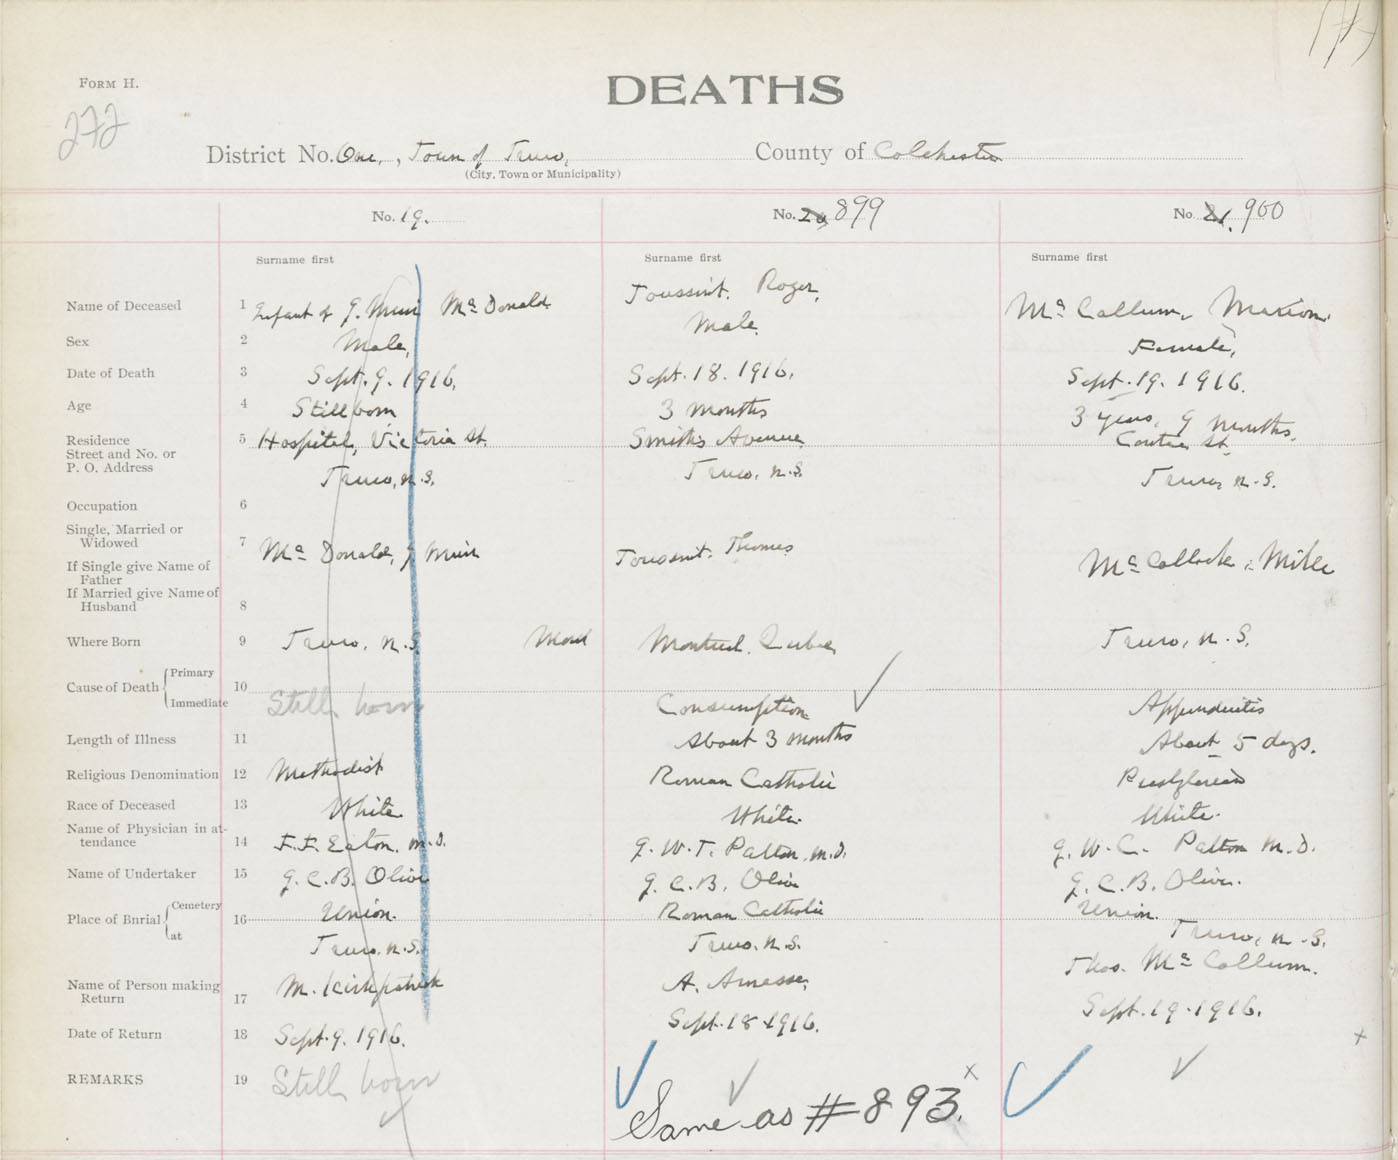 FORM H.
DEATHS
272
District No. One, Town of Truro, County of Colchester
(City, Town or Municipality)
No. 19. No. 20 899 No. 21. 900
Surname first Surname first Surname first
Name of Deceased 1 Infant of G. Muir Mc Donald Toussint. Roger, Mc Callum, Marion.
Sex 2 Male, Male. Female,
Date of Death 3 Sept. 9. 1916. Sept. 18. 1916. Sept. 19. 1916.
Age 4 Stillborn 3 months 3 years, 9 months.
Residence 5 Hospital, Victoria St. Smith's Avenue
Street and No. or
P. O. Address Truro, N.S. Truro, N.S. Truro, N.S.
Occupation 6
Single, Married or
Widowed 7 Mc Donald, G Muir Toussint. Thomas Mike
If Single give Name of
Father
If Married give Name of
Husband 8
Where Born 9 Truro, N.S. Montreal. Quebec Truro, N.S.
Cause of Death Primary
Immediate 10 Still born Consumption Appendicitis
Length of Illness 11 About 3 months About 5 days.
Religious Denomination 12 Methodist Roman Catholic Presbyterian
Race of Deceased 13 White. White. White.
Name of Physician in at-
tendance 14 F.F. Eaton, M.D. G. W. T. Patton, M.D. G. W. C. Patton M.D.
Name of Undertaker 15 G. C. B. Olive G. C. B. Olive G. C. B. Olive.
Place of Burial Cemetery 16 Union. Roman Catholic Union.
at Truro, N.S. Truro, N.S. Truro, N.S.
Name of Person making
Return 17 M. Kirkpatrick A. Thos. Mc Callum.
Date of Return 18 Sept. 9. 1916. Sept. 18 1916. Sept. 19. 1916.
REMARKS 19 Still born Same as #893.